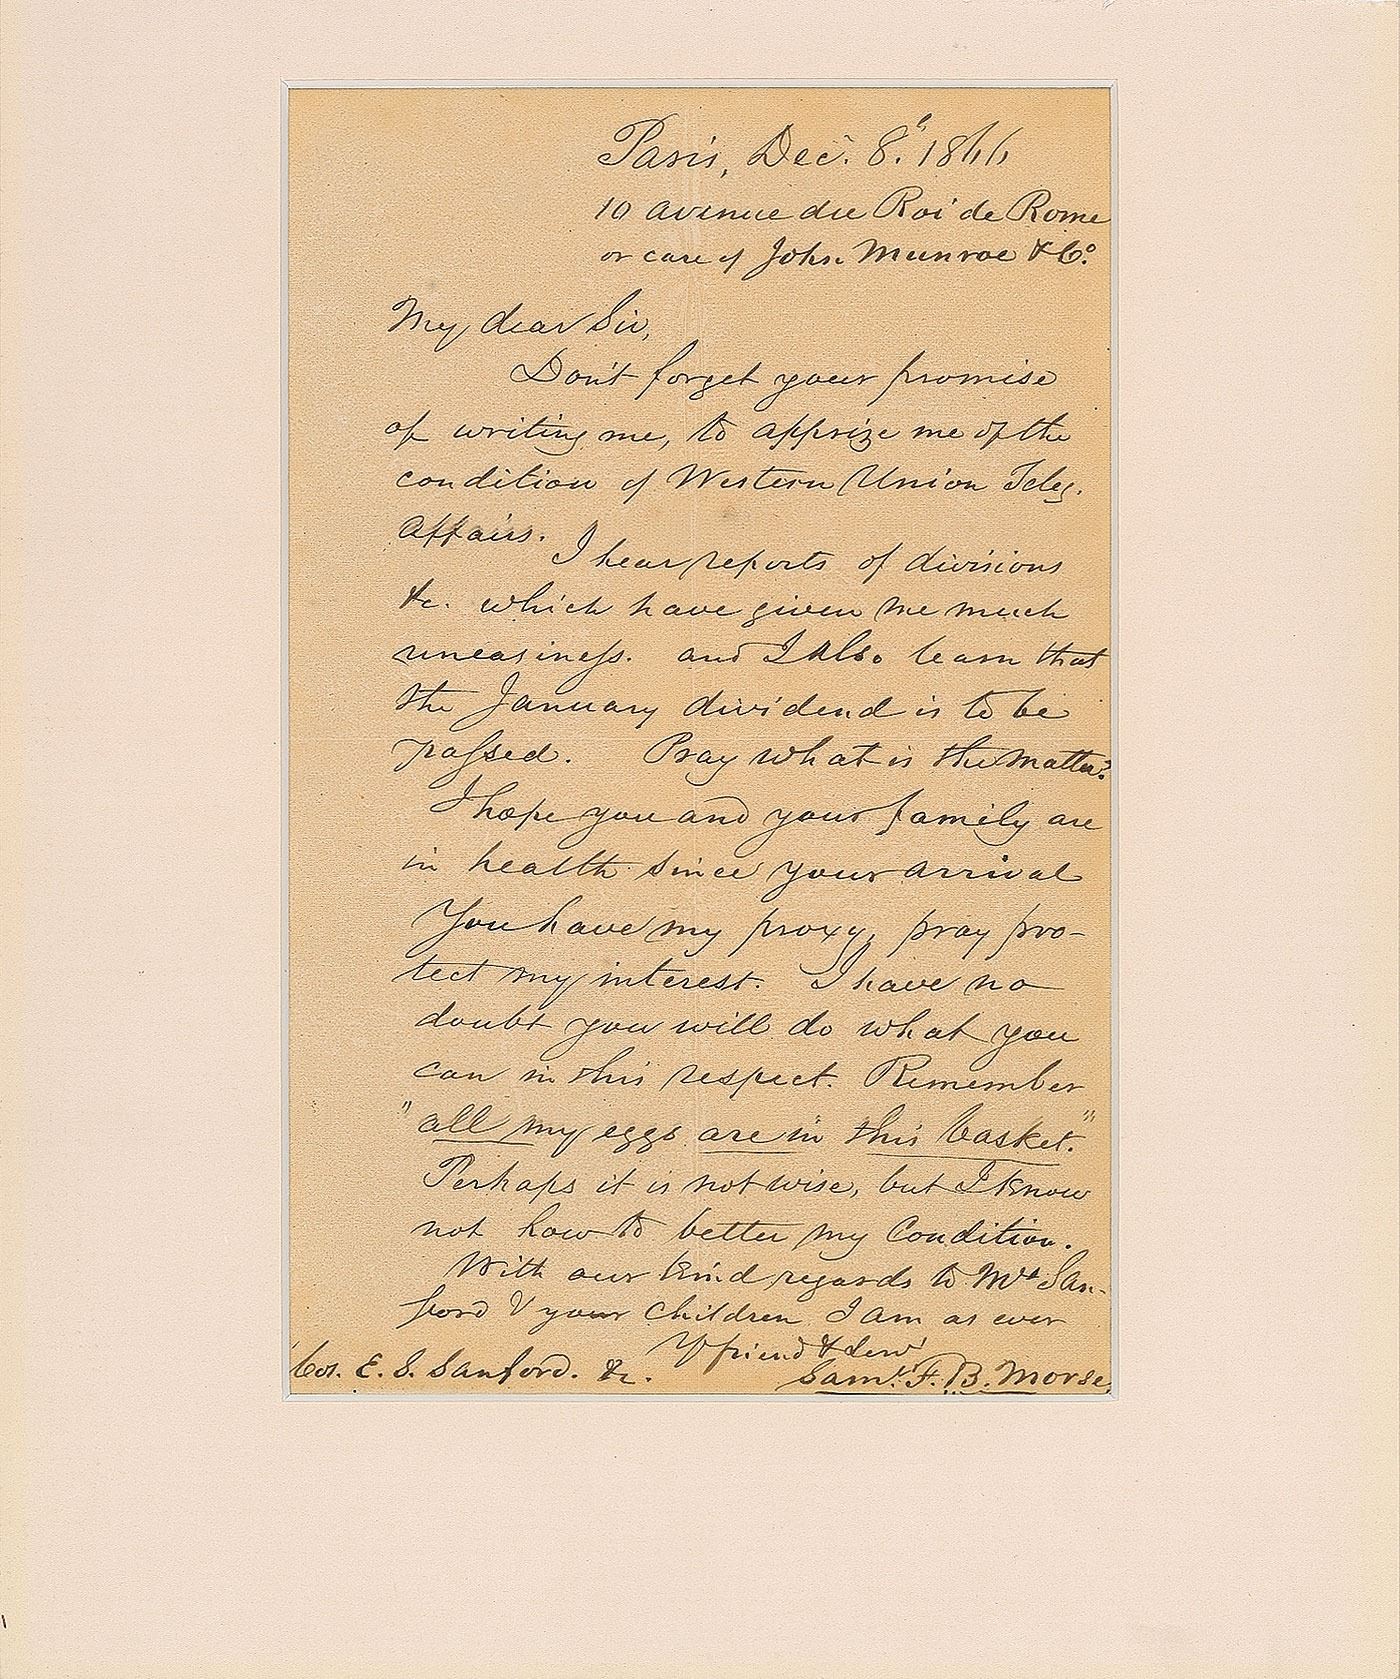 Paris, Dec. 8. 1866
10 avenue du Roi de Rome
or care of John Munroe & Co.
My dear Sir,
Don't forget your promise
of writing me, to apprize me of the
condition of Western Union Teleg.
affairs.
I hear reports of divisions
&c. which have given me much
uneasiness. and I also learn that
the January dividend is to be
passed. Pray what is the matter?
I hope you and your family are
in health since your arrival
You have my proxy, pray pro-
tect my interest. I have no
doubt you will do what you
can in this respect. Remember
"all my eggs are in this basket."
Perhaps it is not wise, but I know
not how to better my Condition.
With our kind regards to Mrs San-
ford & your children I am as ever
Yr friend & Servt
Col. E. S. Sanford. &c. Saml. F. B. Morse.